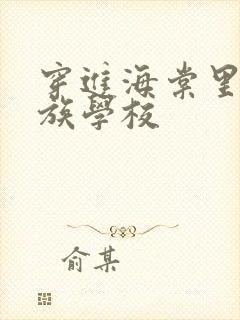 穿進海棠里
族學校
俞某